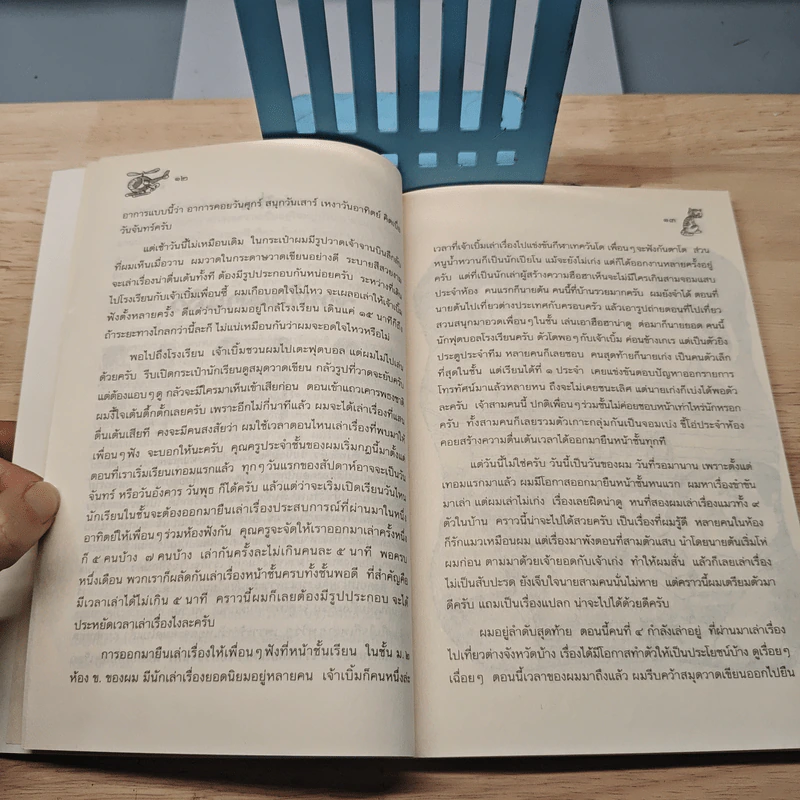 ๑๒
อาการแบบนี้ว่า อาการคอยวันศุกร์ สนุกวันเสาร์ เหงาวันอาทิตย์ คิดเบื่อ
วันจันทร์ครับ
แต่เช้าวันนี้ไม่เหมือนเดิม ในกระเป๋าผมมีรูปวาดเจ้าจานบินลึกลับ
ที่ผมเห็นเมื่อวาน ผมวาดในกระดาษวาดเขียนอย่างดี ระบายสีสวยงาม
จะเล่าเรื่องน่าตื่นเต้นทั้งที ต้องมีรูปประกอบกันหน่อยครับ ระหว่างที่เดิน
ไปโรงเรียนกับเจ้าเบิ้มเพื่อนซี้ ผมเกือบอดใจไม่ไหว จะเผลอเล่าให้เจ้าเบิ้ม
ฟังตั้งหลายครั้ง ดีแต่ว่าบ้านผมอยู่ใกล้โรงเรียน เดินแค่ ๑๕ นาทีก็ถึง
ถ้าระยะทางไกลกว่านี้ละก็ ไม่แน่เหมือนกันว่าผมจะอดใจไหวหรือไม่
พอไปถึงโรงเรียน เจ้าเบิ้มชวนผมไปเตะฟุตบอล แต่ผมไม่ไปเล่น
ด้วยครับ รีบเปิดกระเป๋านักเรียนดูสมุดวาดเขียน กลัวรูปที่วาดจะยับครับ
แต่ต้องแอบๆ ดู กลัวจะมีใครมาเห็นเข้าเสียก่อน ตอนเข้าแถวเคารพธงชาติ
ผมงี้ใจเต้นตึ้กตั้กเลยครับ เพราะอีกไม่กี่นาทีแล้ว ผมจะได้เล่าเรื่องที่แสน
ตื่นเต้นเสียที คงจะมีคนสงสัยว่า ผมใช้เวลาตอนไหนเล่าเรื่องที่พบมาให้
เพื่อนๆ ฟัง จะบอกให้นะครับ คุณครูประจำชั้นของผมเริ่มกฎนี้มาตั้งแต่
ตอนที่เราเริ่มเรียนเทอมแรกแล้ว ทุกๆ วันแรกของสัปดาห์อาจจะเป็นวัน
จันทร์ หรือวันอังคาร วันพุธ ก็ได้ครับ แล้วแต่ว่าจะเริ่มเปิดเรียนวันไหน
นักเรียนในชั้นจะต้องออกมายืนเล่าเรื่องประสบการณ์ที่ผ่านมาในหนึ่ง
อาทิตย์ให้เพื่อนๆ ร่วมห้องฟังกัน คุณครูจะจัดให้เราออกมาเล่าครั้งหนึ่ง
ก็ ๕ คนบ้าง ๗ คนบ้าง เล่ากันครั้งละไม่เกินคนละ ๕ นาที พอครบ
หนึ่งเดือน พวกเราก็ผลัดกันเล่าเรื่องหน้าชั้นครบทั้งชั้นพอดี ที่สำคัญคือ
มีเวลาเล่าได้ไม่เกิน ๕ นาที คราวนี้ผมก็เลยต้องมีรูปประกอบ จะได้
ประหยัดเวลาเล่าเรื่องไงละครับ
การออกมายืนเล่าเรื่องให้เพื่อนๆ ฟังที่หน้าชั้นเรียน ในชั้น ม.๒
ห้อง ข. ของผม มีนักเล่าเรื่องยอดนิยมอยู่หลายคน เจ้าเบิ้มก็คนหนึ่งล่ะ
๑๓
เวลาที่เจ้าเบิ้มเล่าเรื่องไปแข่งขันกีฬาเทควันโด เพื่อนๆ จะฟังกันตาโต ส่วน
หนูน้ำหวานก็เป็นนักเปียโน แม้จะยังไม่เก่ง แต่ก็ได้ออกงานหลายครั้งอยู่
ครับ แต่ที่เป็นนักเล่าผู้สร้างความฮือฮาเห็นจะไม่มีใครเกินสามจอมแสบ
ประจำห้อง คนแรกก็นายต้น คนนี้ที่บ้านรวยมากครับ ผมยังจำได้ ตอนที่
นายต้นไปเที่ยวต่างประเทศกับครอบครัว แล้วเอารูปถ่ายตอนที่ไปเที่ยว
สวนสนุกมาอวดเพื่อนๆ ในชั้น เล่นเอาฮือฮาน่าดู ต่อมาก็นายยอด คนนี้
นักฟุตบอลโรงเรียนครับ ตัวโตพอๆ กับเจ้าเบิ้ม ค่อนข้างเกเร แต่เป็นตัวยิง
ประตูประจำทีม หลายคนก็เลยชอบ คนสุดท้ายก็นายเก่ง เป็นคนตัวเล็ก
ที่สุดในชั้น แต่เรียนได้ที่ ๑ ประจำ เคยแข่งขันตอบปัญหาออกรายการ
โทรทัศน์มาแล้วหลายหน ถึงจะไม่เคยชนะเลิศ แต่นายเก่งก็เบ่งได้พอตัว
ละครับ เจ้าสามคนนี้ ปกติเพื่อนๆ ร่วมชั้นไม่ค่อยชอบหน้าเท่าไหร่นักหรอก
ครับ ทั้งสามคนก็เลยรวมตัวเกาะกลุ่มกันเป็นจอมเบ่ง ขี้โอ่ประจำห้อง
คอยสร้างความตื่นเต้นเวลาได้ออกมายืนหน้าชั้นทุกที
แต่วันนี้ไม่ใช่ครับ วันนี้เป็นวันของผม วันที่รอมานาน เพราะตั้งแต่
เทอมแรกมาแล้ว ผมมีโอกาสออกมายืนหน้าชั้นหนแรก ผมหาเรื่องขำขัน
มาเล่า แต่ผมเล่าไม่เก่ง เรื่องเลยฝืดน่าดู หนที่สองผมเล่าเรื่องแมวทั้ง ๙
ตัวในบ้าน คราวนี้น่าจะไปได้สวยครับ เป็นเรื่องที่ผมรู้ดี หลายคนในห้อง
ก็รักแมวเหมือนผม แต่เรื่องมาพังตอนที่สามตัวแสบ นำโดยนายต้นเริ่มโห่
ผมก่อน ตามมาด้วยเจ้ายอดกับเจ้าเก่ง ทำให้ผมสั่น แล้วก็เลยเล่าเรื่อง
ไม่เป็นสับปะรด ยังเจ็บใจนายสามคนนั่นไม่หาย แต่คราวนี้ผมเตรียมตัวมา
ดีครับ แถมเป็นเรื่องแปลก น่าจะไปได้ด้วยดีครับ
ผมอยู่ลำดับสุดท้าย ตอนนี้คนที่ ๔ กำลังเล่าอยู่ ที่ผ่านมาเล่าเรื่อง
ไปเที่ยวต่างจังหวัดบ้าง เรื่องได้มีโอกาสทำตัวให้เป็นประโยชน์บ้าง ดูเรื่อยๆ
เฉื่อยๆ ตอนนี้เวลาของผมมาถึงแล้ว ผมรีบคว้าสมุดวาดเขียนออกไปยืน